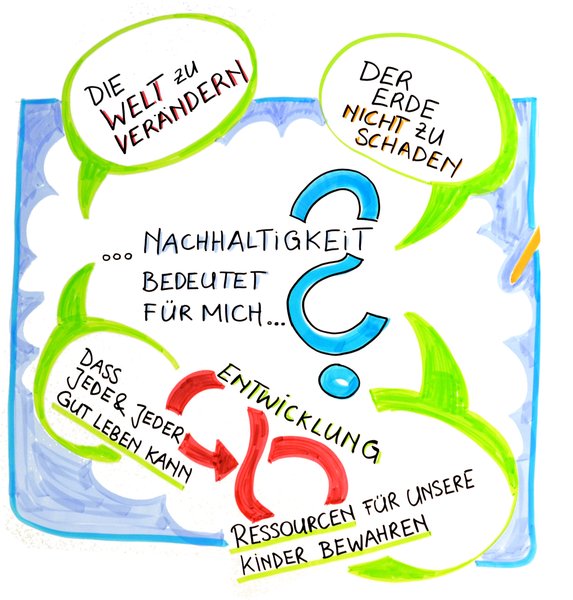 DIE
WELT ZU
VERÄNDERN
DER
ERDE
NICHT ZU
SCHADEN
... NACHHALTIGKEIT
BEDEUTET
FÜR MICH...
DASS
JEDE & JEDER
GUT LEBEN KANN
ENTWICKLUNG
RESSOURCEN FÜR UNSERE
KINDER BEWAHREN